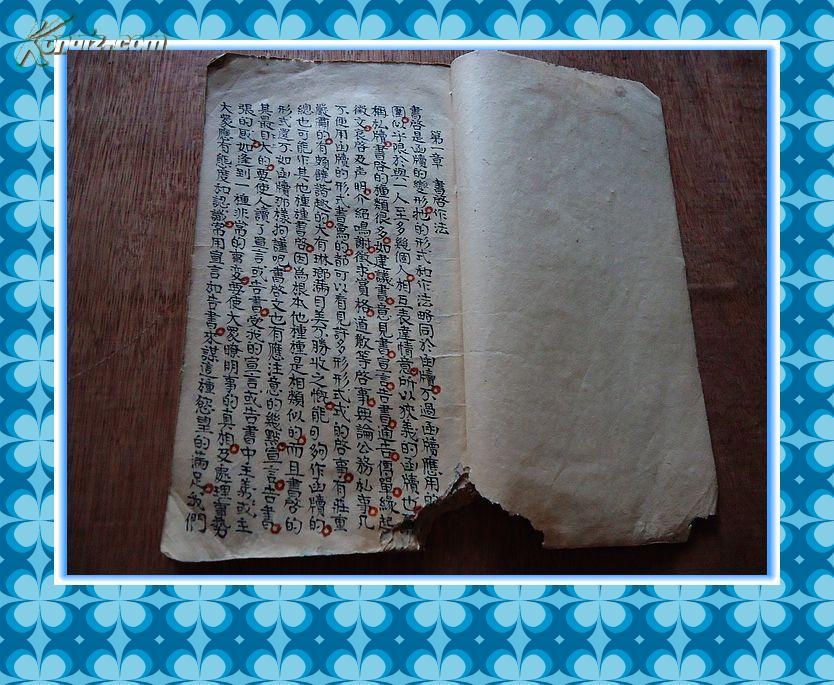 Kongfz.com
第一章 書啓作法
書啓是函牘的變形牠的形式和作法略同於函牘不過函牘應用的
圍似乎限於與一人至多幾個人相互表達情意所以狹義的函牘也
稱私牘書啓的種類很多如建議書意見書宣言告書通告傳單緣起
徵文哀啓及声明介紹鳴謝徵求賞格道歉等啓事無論公務私事凡
不便用函牘的形式書寫的都可以看見許多形形式式的啓事有莊重
嚴肅的有頗饒諧趣的大有琳瑯滿目美不勝收之慨能夠作函牘的
總也可能作其他種種書啓因爲根本他種種是相類似的而且書啓的
形式還不如函牘那樣拘謹呢書啓文也有應注意的幾點宣言告書
其最大的要使人讀了宣言或告書受我的宣言或告書中主義或主
張的感如逢到一種非常的事变要使大衆瞭明事的真相及處理事勢
大衆應有態度如認識常用宣言如告書來謀這種慾望的滿足我們